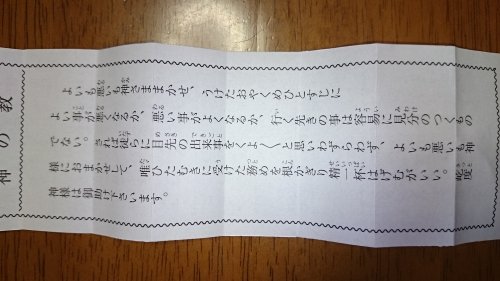 神の教
よいも悪いも神さままかせ、うけたおやくめひとすじに
よい事が悪くなるか、悪い事がよくなるか、行く先きの事は容易に見分のつくもの
でない。されば徒らに目先きの出来事をくよ〱と思いわずらわず、よいも悪いも神
様におまかせして、唯ひたむきに受けた務めを根かぎり精一杯はげむがいい。屹度
神様は御助け下さいます。